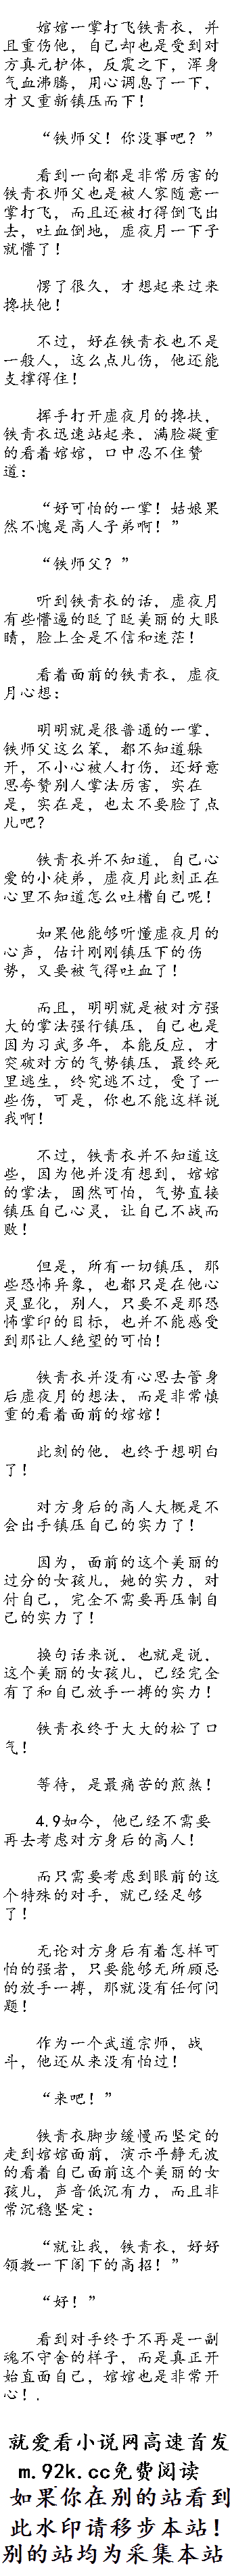 婠婠一掌打飞铁青衣，并
且重伤他，自己却也是受到对
方真元护体，反震之下，浑身
气血沸腾，用心调息了一下，
才又重新镇压而下！
“铁师父！你没事吧？”
看到一向都是非常厉害的
铁青衣师父也是被人家随意一
掌打飞，而且还被打得倒飞出
去，吐血倒地，虚夜月一下子
就懵了！
愣了很久，才想起来过来
搀扶他！
不过，好在铁青衣也不是
一般人，这么点儿伤，他还能
支撑得住！
挥手打开虚夜月的搀扶，
铁青衣迅速站起来，满脸凝重
的看着婠婠，口中忍不住赞
道：
“好可怕的一掌！姑娘果
然不愧是高人子弟啊！”
“铁师父？”
听到铁青衣的话，虚夜月
有些懵逼的眨了眨美丽的大眼
睛，脸上全是不信和迷茫！
看着面前的铁青衣，虚夜
月心想：
明明就是很普通的一掌，
铁师父这么笨，都不知道躲
开，不小心被人打伤，还好意
思夸赞别人掌法厉害，实在
是，实在是，也太不要脸了点
儿吧？
铁青衣并不知道，自己心
爱的小徒弟，虚夜月此刻正在
心里不知道怎么吐槽自己呢！
如果他能够听懂虚夜月的
心声，估计刚刚镇压下的伤
势，又要被气得吐血了！
而且，明明就是被对方强
大的掌法强行镇压，自己也是
因为习武多年，本能反应，才
突破对方的气势镇压，最终死
里逃生，终究逃不过，受了一
些伤，可是，你也不能这样说
我啊！
不过，铁青衣并不知道这
些，因为他并没有想到，婠婠
的掌法，固然可怕，气势直接
镇压自己心灵，让自己不战而
败！
但是，所有一切镇压，那
些恐怖异象，也都只是在他心
灵显化，别人，只要不是那恐
怖掌印的目标，也并不能感受
到那让人绝望的可怕！
铁青衣并没有心思去管身
后虚夜月的想法，而是非常慎
重的看着面前的婠婠！
此刻的他，也终于想明白
了！
对方身后的高人大概是不
会出手镇压自己的实力了！
因为，面前的这个美丽的
过分的女孩儿，她的实力，对
付自己，完全不需要再压制自
己的实力了！
换句话来说，也就是说，
这个美丽的女孩儿，已经完全
有了和自己放手一搏的实力！
铁青衣终于大大的松了口
气！
等待，是最痛苦的煎熬！
4.9如今，他已经不需要
再去考虑对方身后的高人！
而只需要考虑到眼前的这
个特殊的对手，就已经足够
了！
无论对方身后有着怎样可
怕的强者，只要能够无所顾忌
的放手一搏，那就没有任何问
题！
作为一个武道宗师，战
斗，他还从来没有怕过！
“来吧！”
铁青衣脚步缓慢而坚定的
走到婠婠面前，演示平静无波
的看着自己面前这个美丽的女
孩儿，声音低沉有力，而且非
常沉稳坚定：
“就让我，铁青衣，好好
领教一下阁下的高招！”
“好！”
看到对手终于不再是一副
魂不守舍的样子，而是真正开
始直面自己，婠婠也是非常开
心！.
就爱看小说网高速首发
m.92k.cc免费阅读
如果你在别的站看到
此水印请移步本站！
别的站均为采集本站